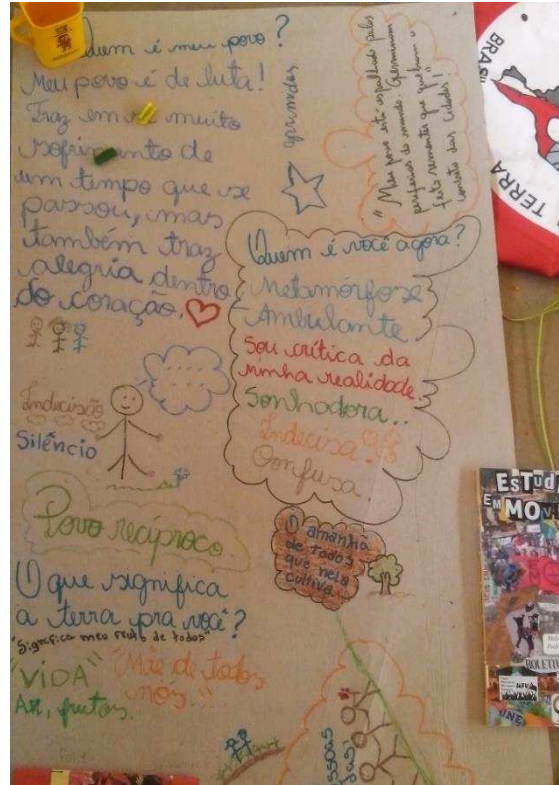 Quem é meu povo?
Meu povo é de luta!
Traz em si muito
sofrimento de
um tempo que se
passou, mas
também traz
alegria dentro
do coração.
oprimidos
"Meu povo está espalhado pelas
periferias do mundo. Germinam
feito sementes que quebram o
contato das cidades!"
BRASIL
TERRA
Quem é você agora?
Metamorfose
Ambulante
Sou crítica da
minha realidade
Sonhadora..
Indecisa
Confusa
Indecisão
Silêncio
Povo recíproco.
O amanhã
de todos
que nela
cultiva..
O que significa
a terra pra você?
"Significa meu fruto de todos"
"VIDA"
"Mãe de todos
nós."
Ar, frutos.
ESTUD
EM MOV
BOLETI